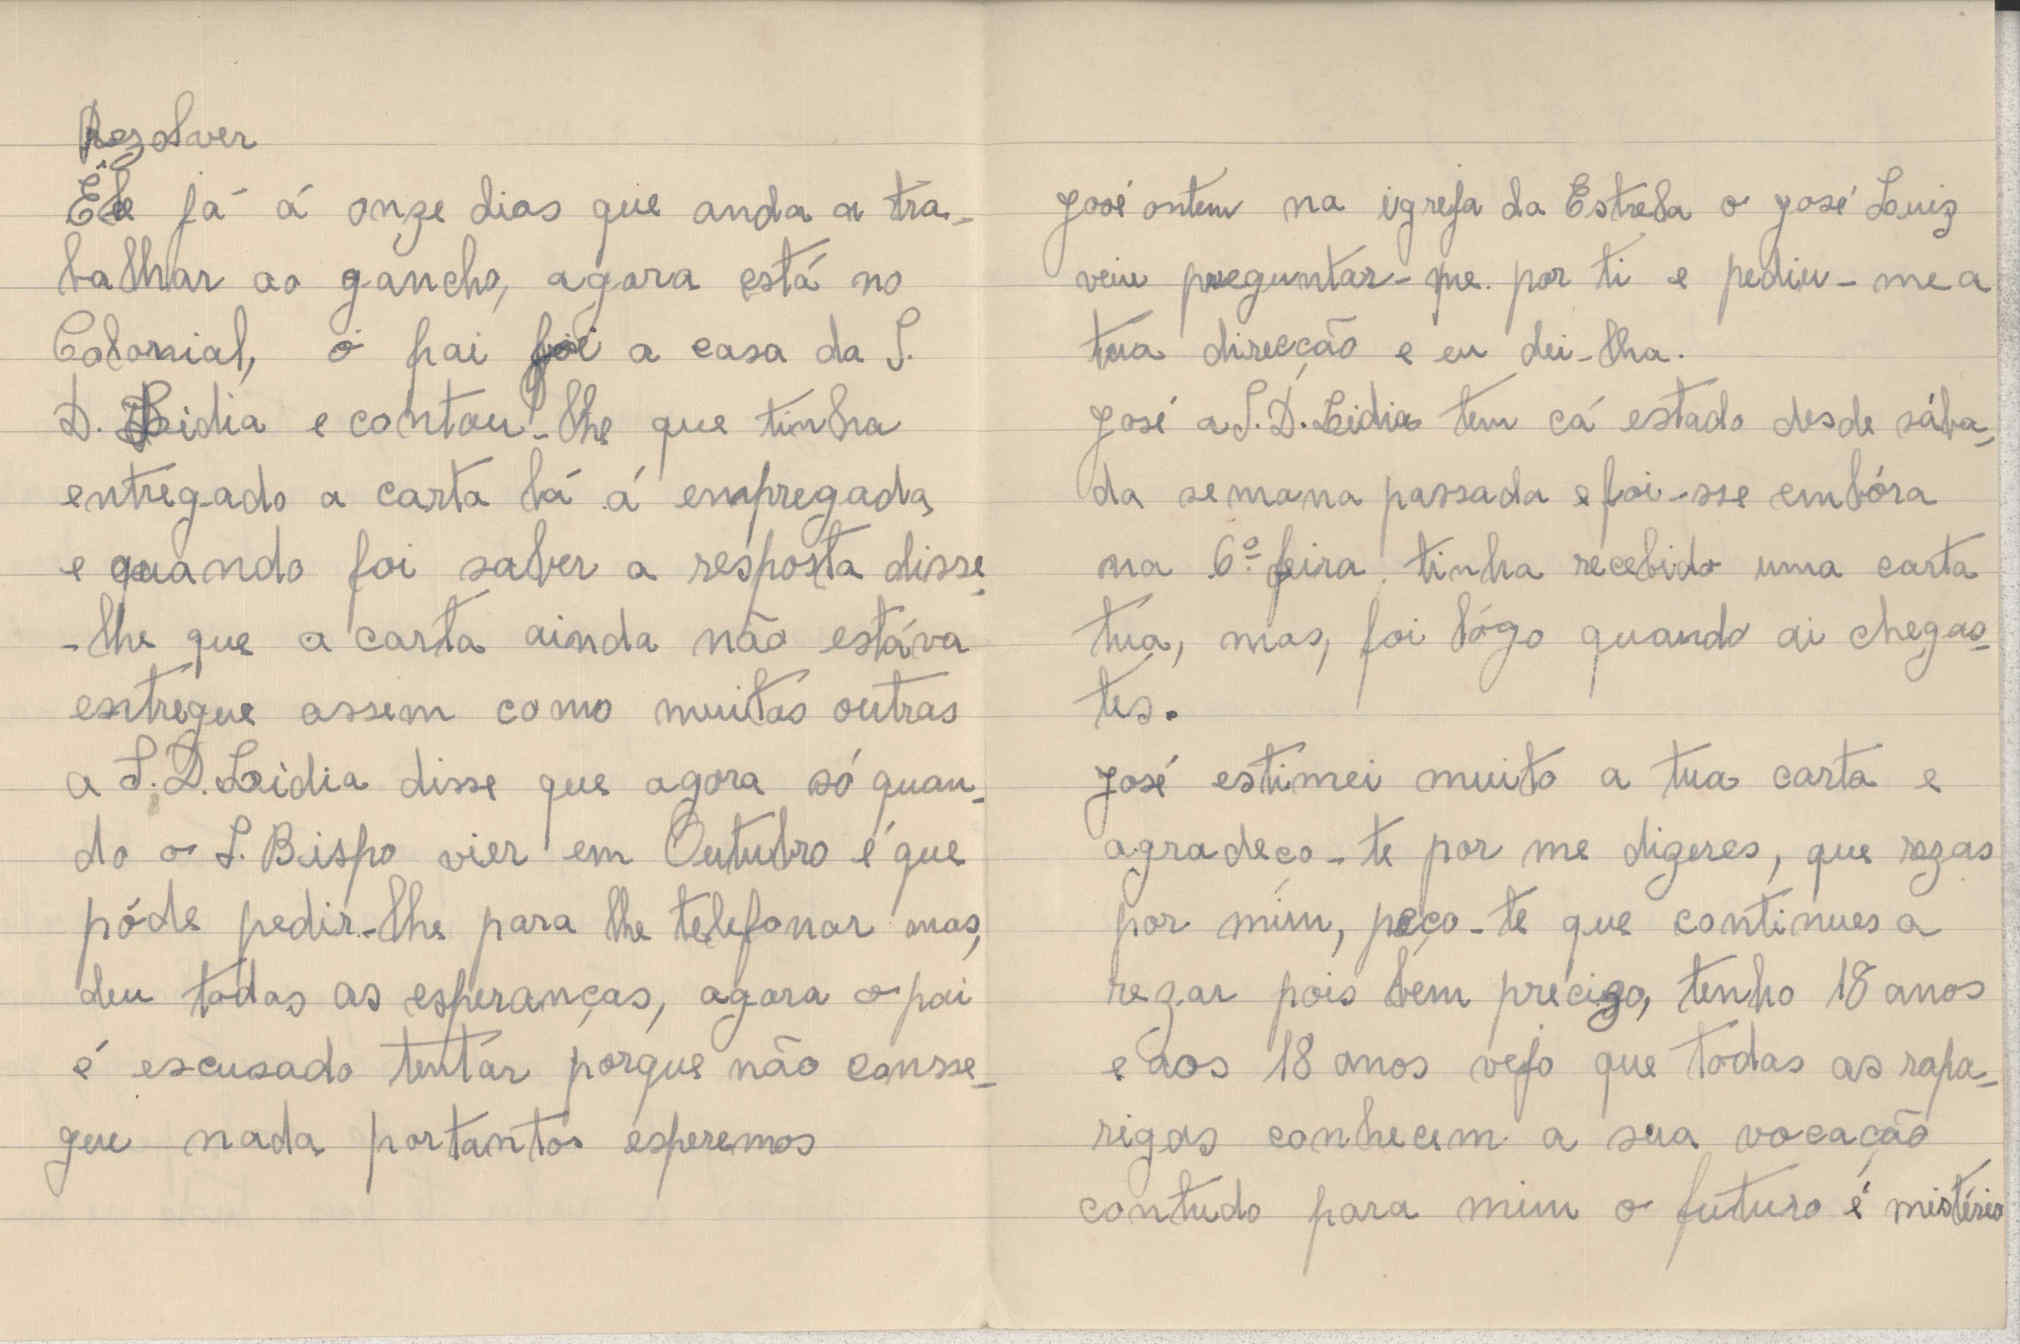 Rezolver
Êle já á onze dias que anda a tra-
balhar ao gancho, agora está no
Colonial, o pai foi a casa da S.
D. Lidia e contou-lhe que tinha
entregado a carta lá á empregada,
e quando foi saber a resposta disse-
-lhe que a carta ainda não estáva
entregue assem como muitas outras
a S. D. Lidia disse que agora só quan-
do o S. Bispo vier em Outubro é que
póde pedir-lhe para lhe telefonar mas,
deu todas as esperanças, agora o pai
é escusado tentar porque não consse-
gue nada portanto esperemos
José ontem na igreja da Estrela o José Luiz
veiu preguntar-me por ti e pediu-me a
tua direcção e eu dei-lha.
José a S. D. Lidia tem cá estado desde sába,
da semana passada e foi-sse embóra
na 6º feira, tinha recebido uma carta
tua, mas, foi lógo quando ai chegas-
tes.
José estimei muito a tua carta e
agradeço-te por me dizeres, que rezas
por mim, peço-te que continues a
rezar pois bem précizo, tenho 18 anos
e aos 18 anos vejo que todas as rapa-
rigas conhecem a sua vocação
contudo para mim o futuro é mistério